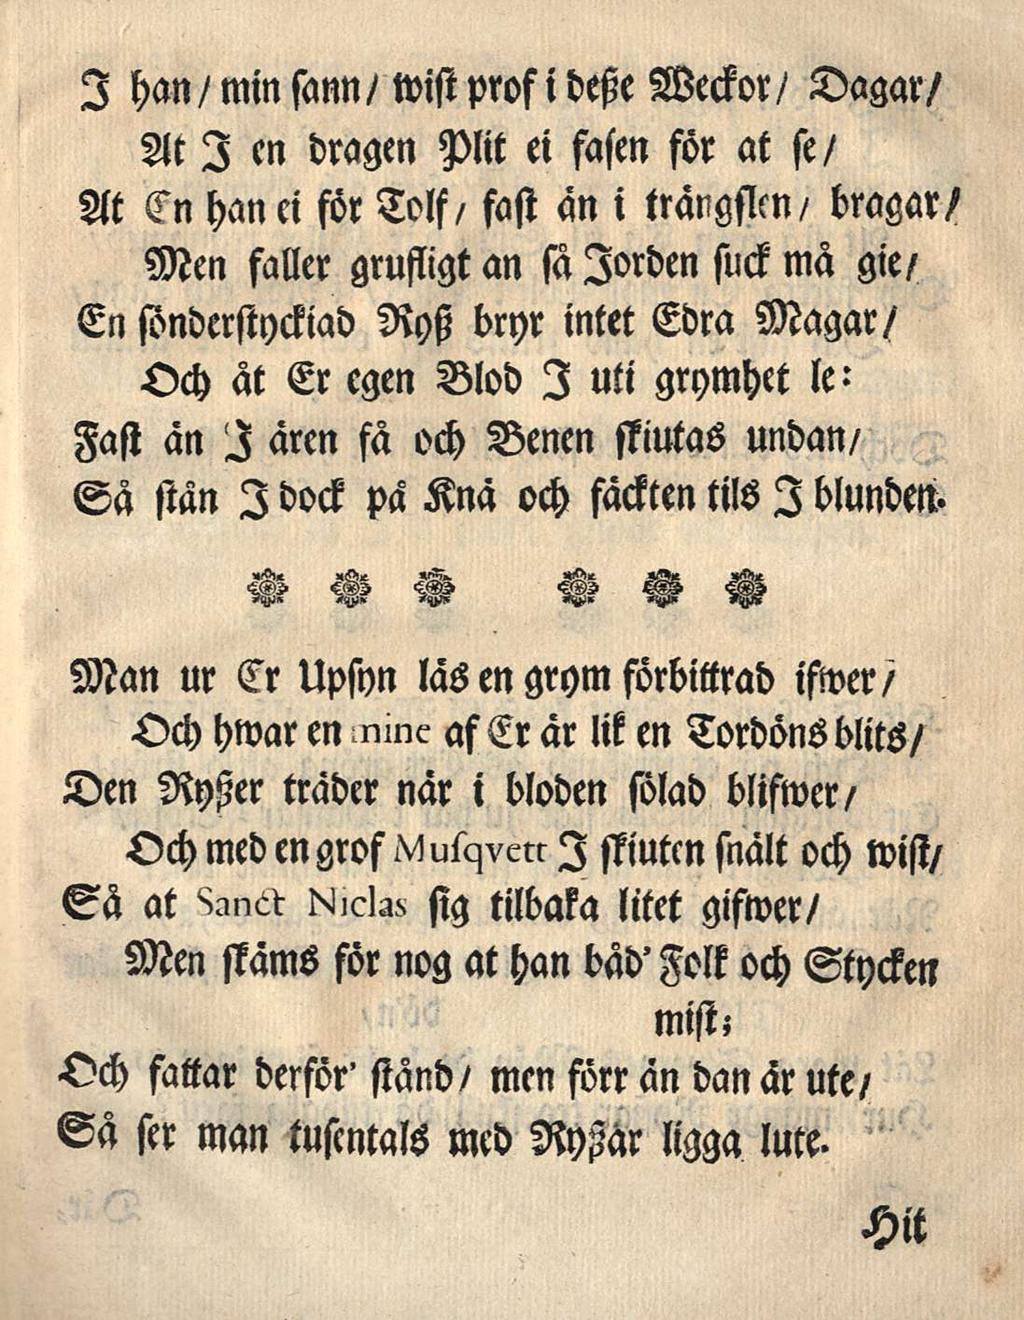 J han / min sann / wist prof i deße Weckor / Dagar /
At J en dragen Plit ei fasen för at se /
At En han ei för Tolf / fast än i trängslen / bragar /
Men faller grufligt an så Jorden suck må gie /
En sönderstyckiad Ryß bryr intet Edra Magar /
Och åt Er egen Blod J uti grymhet le:
Fast än J ären få och Benen skiutas undan /
Så stån J dock på Knä och fäckten tils J blunden.
Man ur Er Upsyn läs en grym förbittrad ifwer /
Och hwar en mine af Er är lik en Tordöns blits /
Den Ryßer träder när i bloden sölad blifwer /
Och med en grof Musqvett J skiuten snält och wist /
Så at Sanct Niclas sig tilbaka litet gifwer /
Men skäms för nog at han båd' Folk och Stycken
mist;
Och fattar derför' stånd / men förr än dan är ute /
Så ser man tusentals med Ryßar ligga lute.
Hit